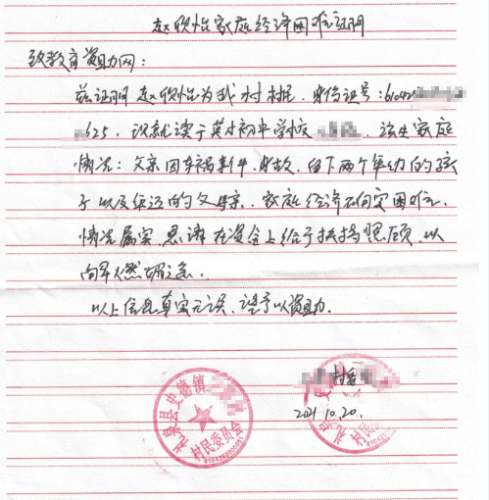 赵欣怡家庭经济困难证明
致教育资助网:
兹证明 赵欣怡为我村村民,身份证号:61042
625,现就读于英才初中学校,该生家庭
情况:父亲因车祸事件,身故,留下两个年幼的孩
子以及年迈的父母亲,家庭经济确实困难,
情况属实,恳请在资金上给予扶持照顾,以
向军人燃眉之急,
以上信息真实无误,望予以资助.
村委
2021.10.20.
礼泉县史德镇
村民委员会